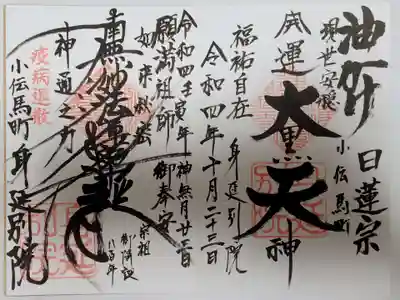 油断
日蓮宗
現世安穏
小伝馬町
開運大黒天神
福祐自在
身延別院
令和四年十月二十三日
令和四壬寅年神無月廿三日
願満祖師御奉安
如来秘密
宗祖
御降誕
八百年
南無妙法蓮華経
神通之力
疫病退散
小伝馬町
身延別院